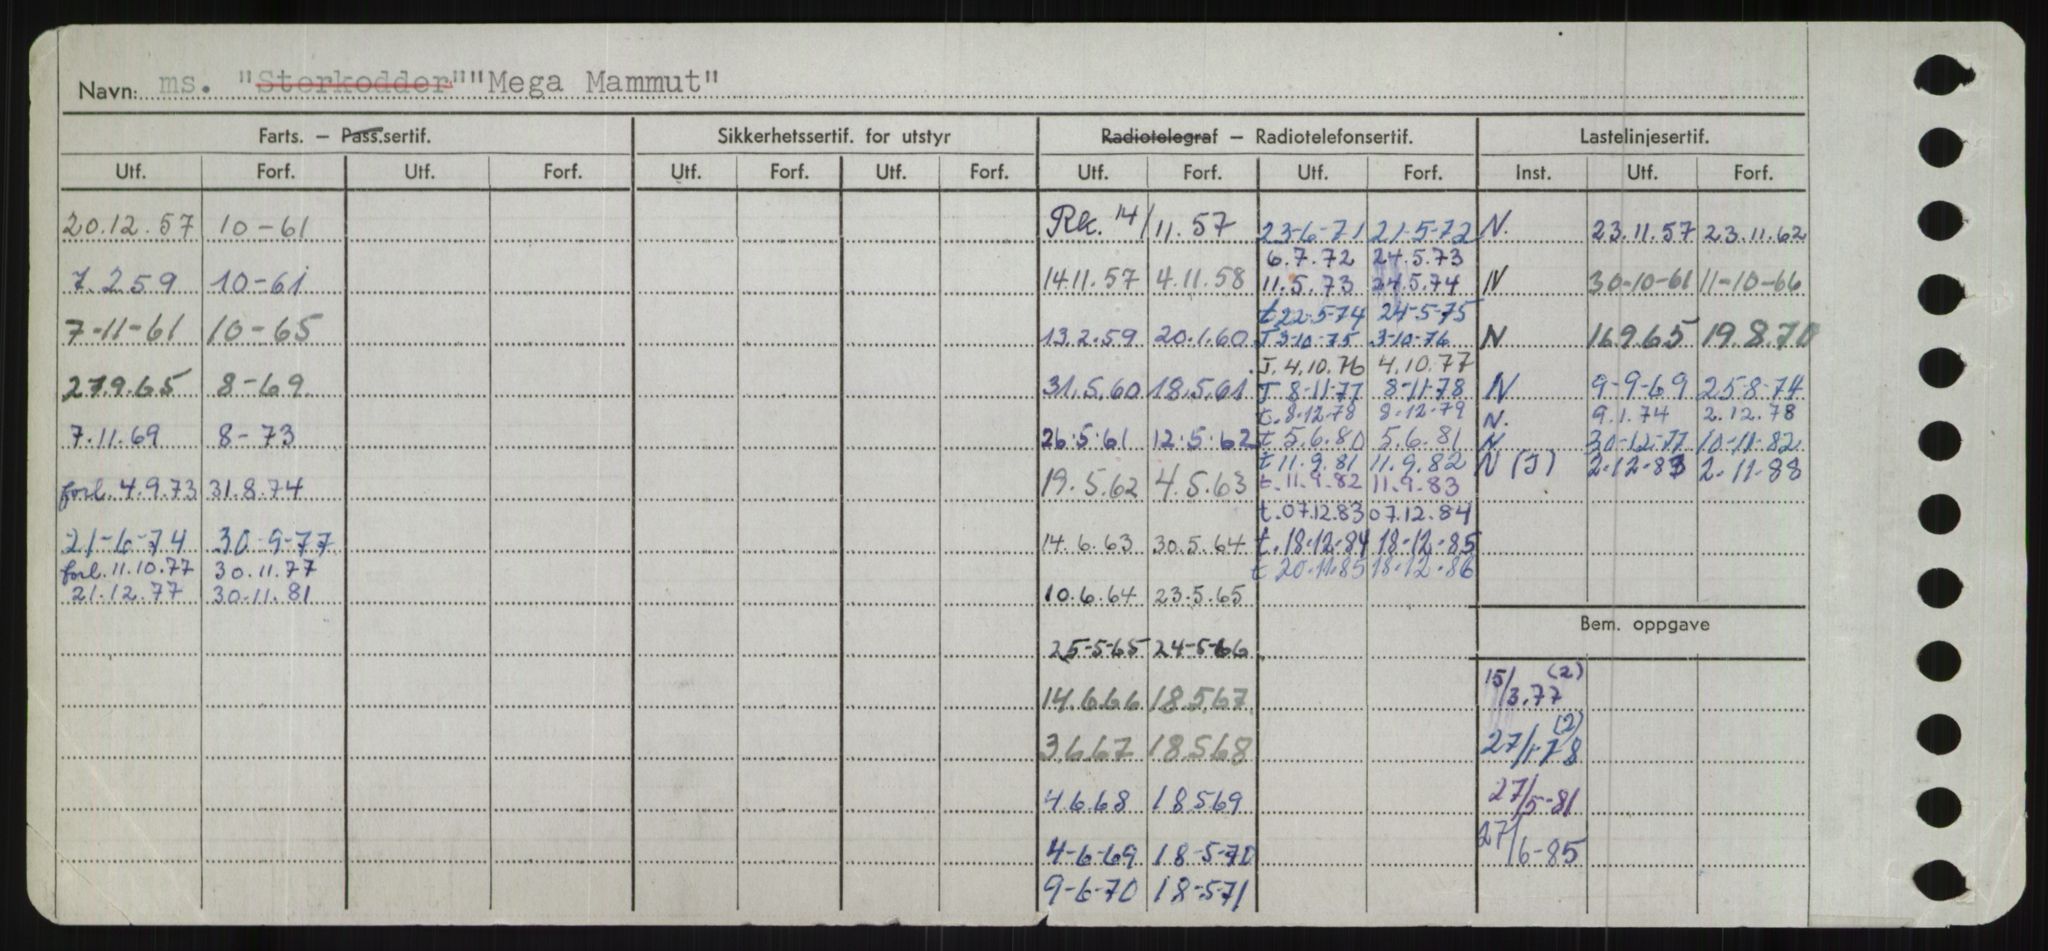 Navn: ms. "Sterkodder" "Mega Mammut"
Farts. – Pass.sertif. Sikkerhetssertif. for utstyr Radiotelegraf – Radiotelefonsertif. Lastelinjesertif.
Utf. Forf. Utf. Forf. Utf. Forf. Utf. Forf. Utf. Forf. Utf. Forf. Inst. Utf. Forf.
20.12.57 10-61
7.2.59 10-61
7-11-61 10-65
27.9.65 8-69
7.11.69 8-73
forl. 4.9.73 31.8.74
21-6-74 30-9-77
forl. 11.10.77 30.11.77
21.12.77 30.11.81
Rk. 14/11.57
14.11.57 4.11.58
13.2.59 20.1.60
31.5.60 18.5.61
26.5.61 12.5.62
19.5.62 4.5.63
14.6.63 30.5.64
10.6.64 23.5.65
25-5-65 24-5-66
14.6.66 18.5.67
3.6.67 18.5.68
4.6.68 18.5.69
4-6-69 18-5-70
9-6-70 18-5-71
23-6-71 21-5-72
6.7.72 24.5.73
11.5.73 24.5.74
t 22-5-74 24-5-75
T 3-10-75 3-10-76
T. 4.10.76 4.10.77
T 8-11-77 8-11-78
t. 8-12-78 8-12-79
t. 5.6.80 5.6.81
t 11.9.81 11.9.82
t. 11.9.82 11.9.83
t. 07.12.83 07.12.84
t. 18-12-84 18-12-85
t 20-11-85 18-12-86
N. 23.11.57 23.11.62
N 30-10-61 11-10-66
N 16.9.65 19.8.70
N 9-9-69 25-8-74
N. 9.1.74 2.12.78
N 30-12-77 10-11-82
N (J) 2-12-83 2-11-88
Bem. oppgave
15/3.77 (2)
27/1-78 (2)
27/5-81
27/6-85